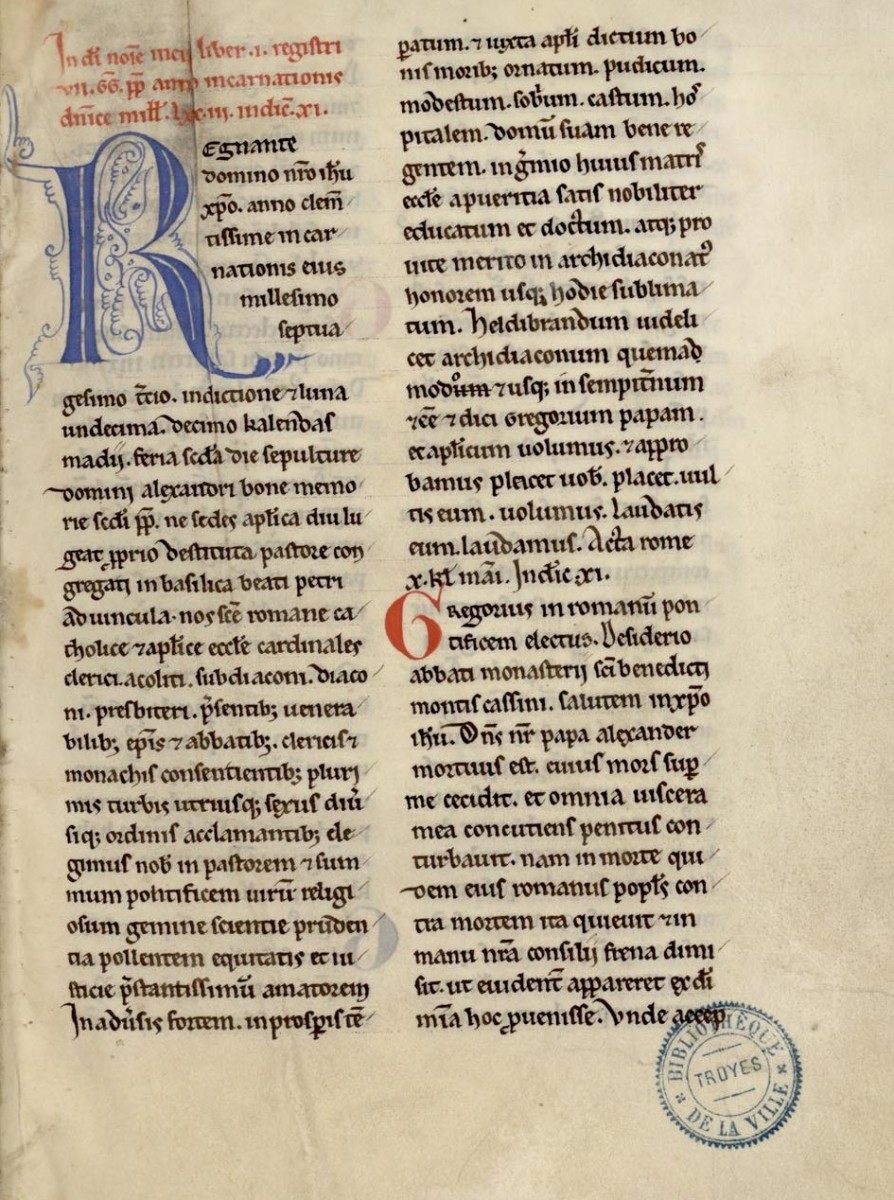 In dī noīe incip̄ liber .i. registri
vii. GG. pp̄ anno incarnationis
dn̄ice mill̄. lxx.iii. indic̄. xi.
Regnante
domino nr̄o ih̄u
xp̄o. anno clem̄
tissime incar
nationis eius
millesimo
septua
gesimo t̄cio. indictione ⁊ luna
undecima. decimo kalendas
madij. feria sc̄da die sepulture
domini alexandri bone memo
rie sc̄di pp̄. ne sedes aplica diu lu
geat ꝓprio destituta pastore con
gregati in basilica beati petri
ad uincula. nos sc̄e romane ca
tholice ⁊ aplice eccl̄e cardinales
clerici. acoliti. subdiaconi. diaco
ni. presbiteri. p̄sentib; uenera
bilib; ep̄is ⁊ abbatib;. clericis ⁊
monachis consentientib; pluri
mis turbis utriusq; sexus diū
siq; ordinis acclamantib; ele
gimus nob̄ in pastorem ⁊ sum
mum pontificem uirū religi
osum gemine scientie pruden
tia pollentem equitatis et iu
sticie p̄stantissimū amatorem
In adūsis fortem. in prosꝑis tē
ꝑatum. ⁊ iuxta apl̄i dictum bo
nis morib; ornatum. pudicum.
modestum. sob̄um. castum. hoſ
pitalem. domū suam bene re
gentem. in gͥmio huius matrꝭ
eccl̄e apueritia satis nobiliter
educatum et doctum. atq; pro
uite merito in archidiaconatꝰ
honorem usq; hodie sublima
tum. heldibrandum uideli
cet archidiaconum quemad
modum ⁊ usq; in sempit̄num
⁊ cē ⁊ dici Gregorium papam.
et apl̄icum uolumus. ⁊ appro
bamus placet uob̄. placet. uul
tis eum. uolumus. laudatis
eum. laudamus. Acta rome
x. kl̄ mai. Indic̄ xi.
Gregorius in romanū pon
tificem electus. Desiderio
abbati monasterij sc̄i benedicti
montis cassini. salutem in xp̄o
ih̄u. Dn̄s nr̄ papa alexander
mortuus est. cuius mors suꝑ
me cecidit. et omnia uiscera
mea concutiens penitus con
turbauit. nam in morte qui
dem eius romanus popl̄s con
tra mortem ita quieuit ⁊ in
manu nr̄a consilij frena dimi
sit. ut euident̄ appareret ex dī
mīa hoc ꝓuenisse. Vnde accep
BIBLIOTHÈQUE
TROYES
DE LA VILLE